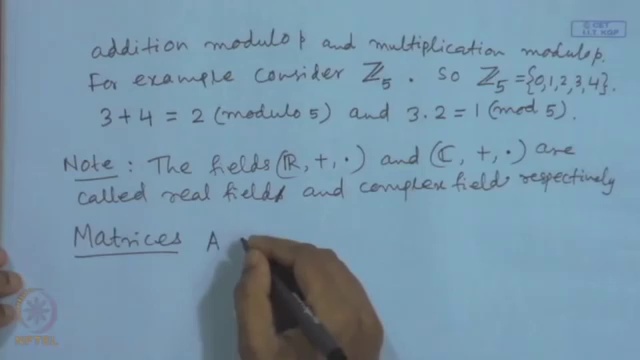 © CET
I.I.T. KGP
addition modulo p and multiplication modulo p.
For example consider ℤ₅. So ℤ₅ = {0,1,2,3,4}.
3+4 = 2 (modulo 5) and 3.2 = 1 (mod 5).
Note : The fields (ℝ, +, ·) and (ℂ, +, ·) are
called real field and complex field respectively
Matrices A
NPTEL